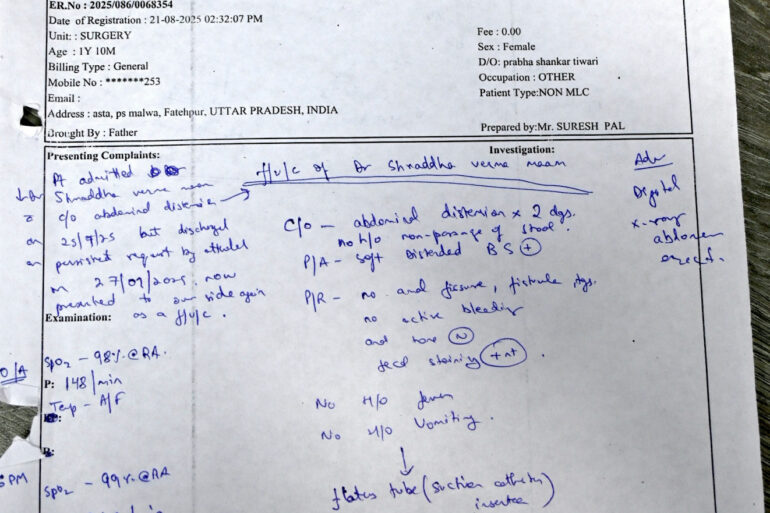 ER.No : 2025/086/0068354
Date of Registration : 21-08-2025 02:32:07 PM
Unit: : SURGERY
Fee : 0.00
Age : 1Y 10M
Sex : Female
Billing Type : General
D/O: prabha shankar tiwari
Mobile No : *******253
Occupation : OTHER
Email :
Patient Type:NON MLC
Address : asta, ps malwa, Fatehpur, UTTAR PRADESH, INDIA
Brought By : Father
Prepared by:Mr. SURESH PAL
Presenting Complaints:
Pt admitted
Shraddha verma maam
c/o abdominal distension
on 25/7/25 but discharged
on persistent request by
on 27/07/2025. now
presented to our side again
as a f/u/c.
Investigation:
f/u/c of Dr Shraddha verma maam
C/o – abdominal distension x 2 dys.
no h/o non-passage of stool.
P/A – soft Distended BS +
P/R – no fissure, fistula,
no active bleeding
tone N
fecal staining +nt
No H/o fever
No H/o Vomiting.
↓
flatus tube (suction catheter)
Adv
Digital
x-ray
abdomen
erect.
Examination:
O/A
SpO2 – 98% @RA.
P: 148/min
Temp – A/F
R:
5PM
SpO2 – 99% @RA